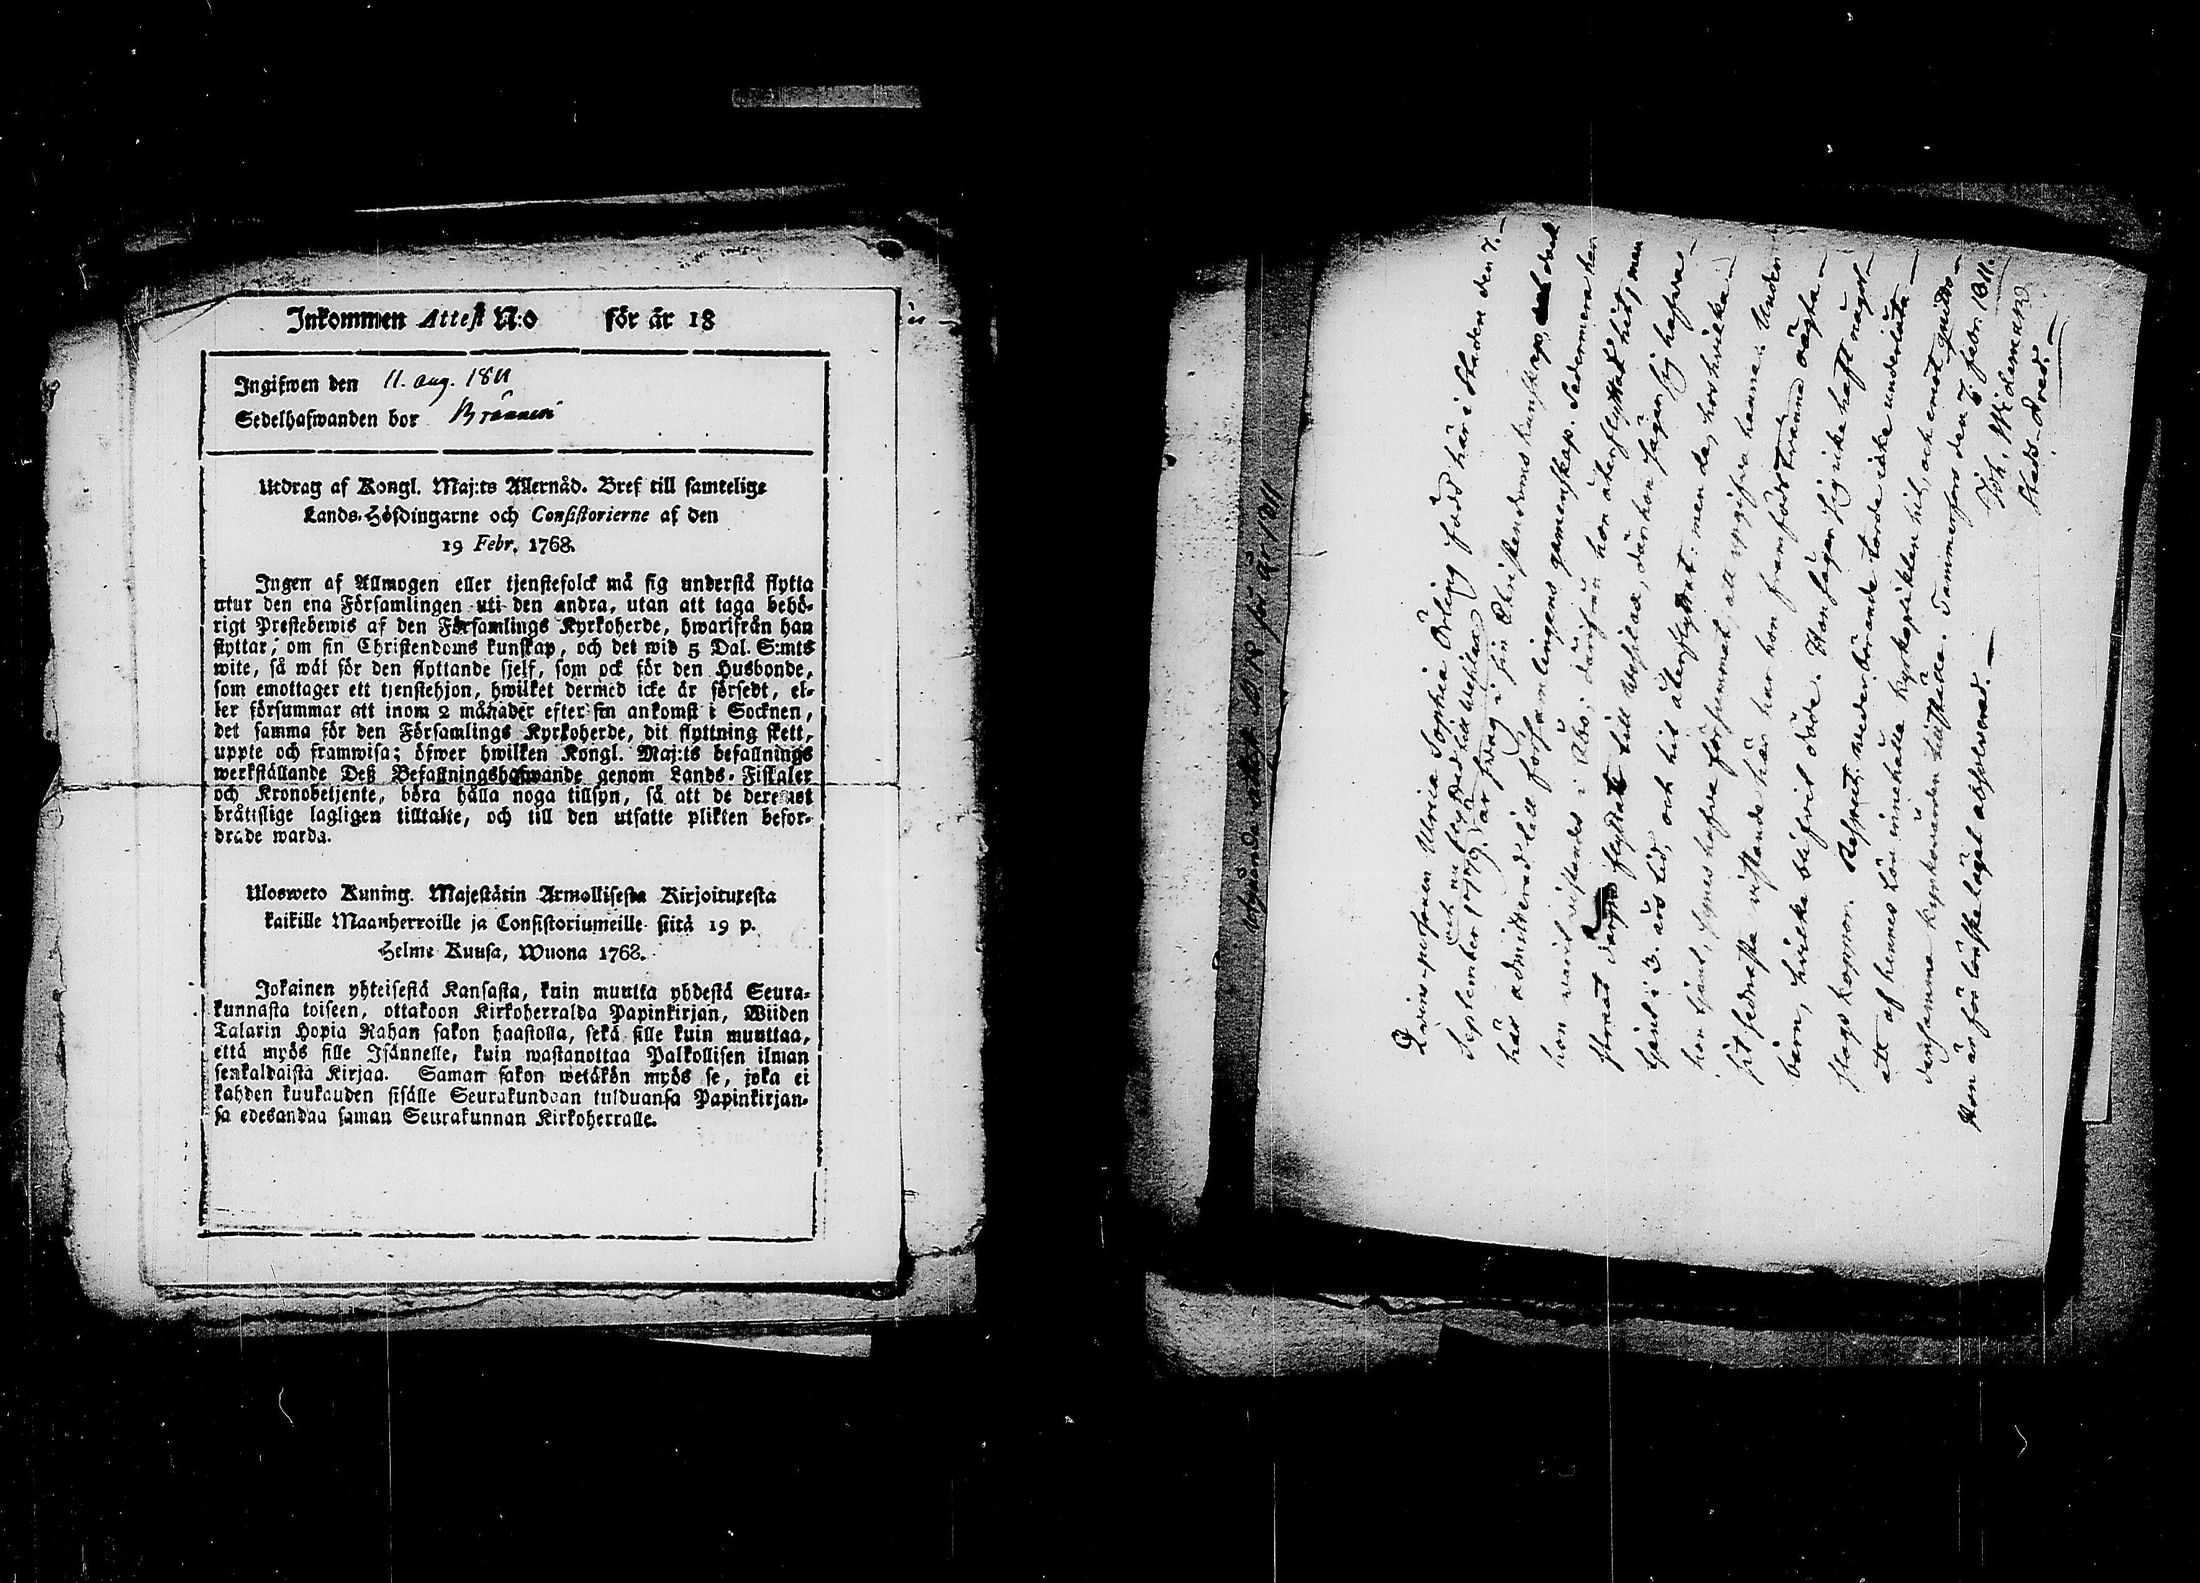 Inkommen Attest N:o för år 18
Ingifwen den 11. aug. 1811
Sedelhafwanden bor Bränneri
Utdrag af Kongl. Maj:ts Allernåd. Bref till samtelige
Lands-Höfdingarne och Consistorierne af den
19 Febr. 1768.
Ingen af Allmogen eller tjenstefolck må sig understå flytta
utur den ena Församlingen uti den andra, utan att taga behö-
rigt Prestebewis af den Församlings Kyrkoherde, hwarifrån han
flyttar, om sin Christendoms kunskap, och det wid 5 Dal. S:mts
wite, så wäl för den flyttande sjelf, som ock för den Husbonde,
som emottager ett tjenstehjon, hwilket dermed icke är försedt, el-
ler försummar att inom 2 månader efter sin ankomst i Socknen,
det samma för den Församlings Kyrkoherde, dit flyttning skett,
uppte och framwisa; öfwer hwilken Kongl. Maj:ts befallnings
werkställande Deß Befallningshafwande genom Lands-Fiskaler
och Kronobetjente, böra hålla noga tillsyn, så att de deremot
bråtislige lagligen tilltalte, och till den utsatte plikten befor-
drade warda.
Ulosweto Kuning. Majestätin Armollisesta Kirjoituxesta
kaikille Maanherroille ja Consistoriumeille siitä 19 p.
Helme Kuusa, Wuona 1768.
Jokainen yhteisestä Kansasta, kuin muutta yhdestä Seura-
kunnasta toiseen, ottakoon Kirkoherralda Papinkirjan, Wiiden
Talarin Hopia Rahan sakon haastolla, sekä sille kuin muuttaa,
että myös sille Isännelle, kuin wastanottaa Palkollisen ilman
senkaldaista Kirjaa. Saman sakon wetäkön myös se, joka ei
kahden kuukauden sisälle Seurakundaan tulduansa Papinkirjan-
sa edesandaa saman Seurakunnan Kirkoherralle.
attest N 18 för år 1811
Qvins-personen Ulrica Sophia Örling född här i Staden den 7.
och nu flyttad till Wesilax
September 1779. är frag i sin Christendoms kunskap, och
här admitterad till församlingens gemenskap. Sedermera har
hon warit vistandes i Åbo; därifrån hon återflyttat hit, men
straxt flyttat till Wesilax, där hon säger sig hafva
tjent i 3. års tid, och hit återflyttat: men de, hos hvilka
hon tjent, synes hafva försummat att uppgifva henne. Under
sit sednaste vistande här har hon framfödt tvänne oägta
barn, hvilka blifvit döde. Hon säger sig icke haft något
slags koppor. Respect. vederbörande torde icke underlåta
att af hennes lön innehålla kyrkoplikten hit, och emot quitto
densamma kyrkovärden tillställa. Tammerfors den 7. febr. 1811.
Joh. Widemann
Stads-Præd.
Hon är för lönskaläget absolverad.